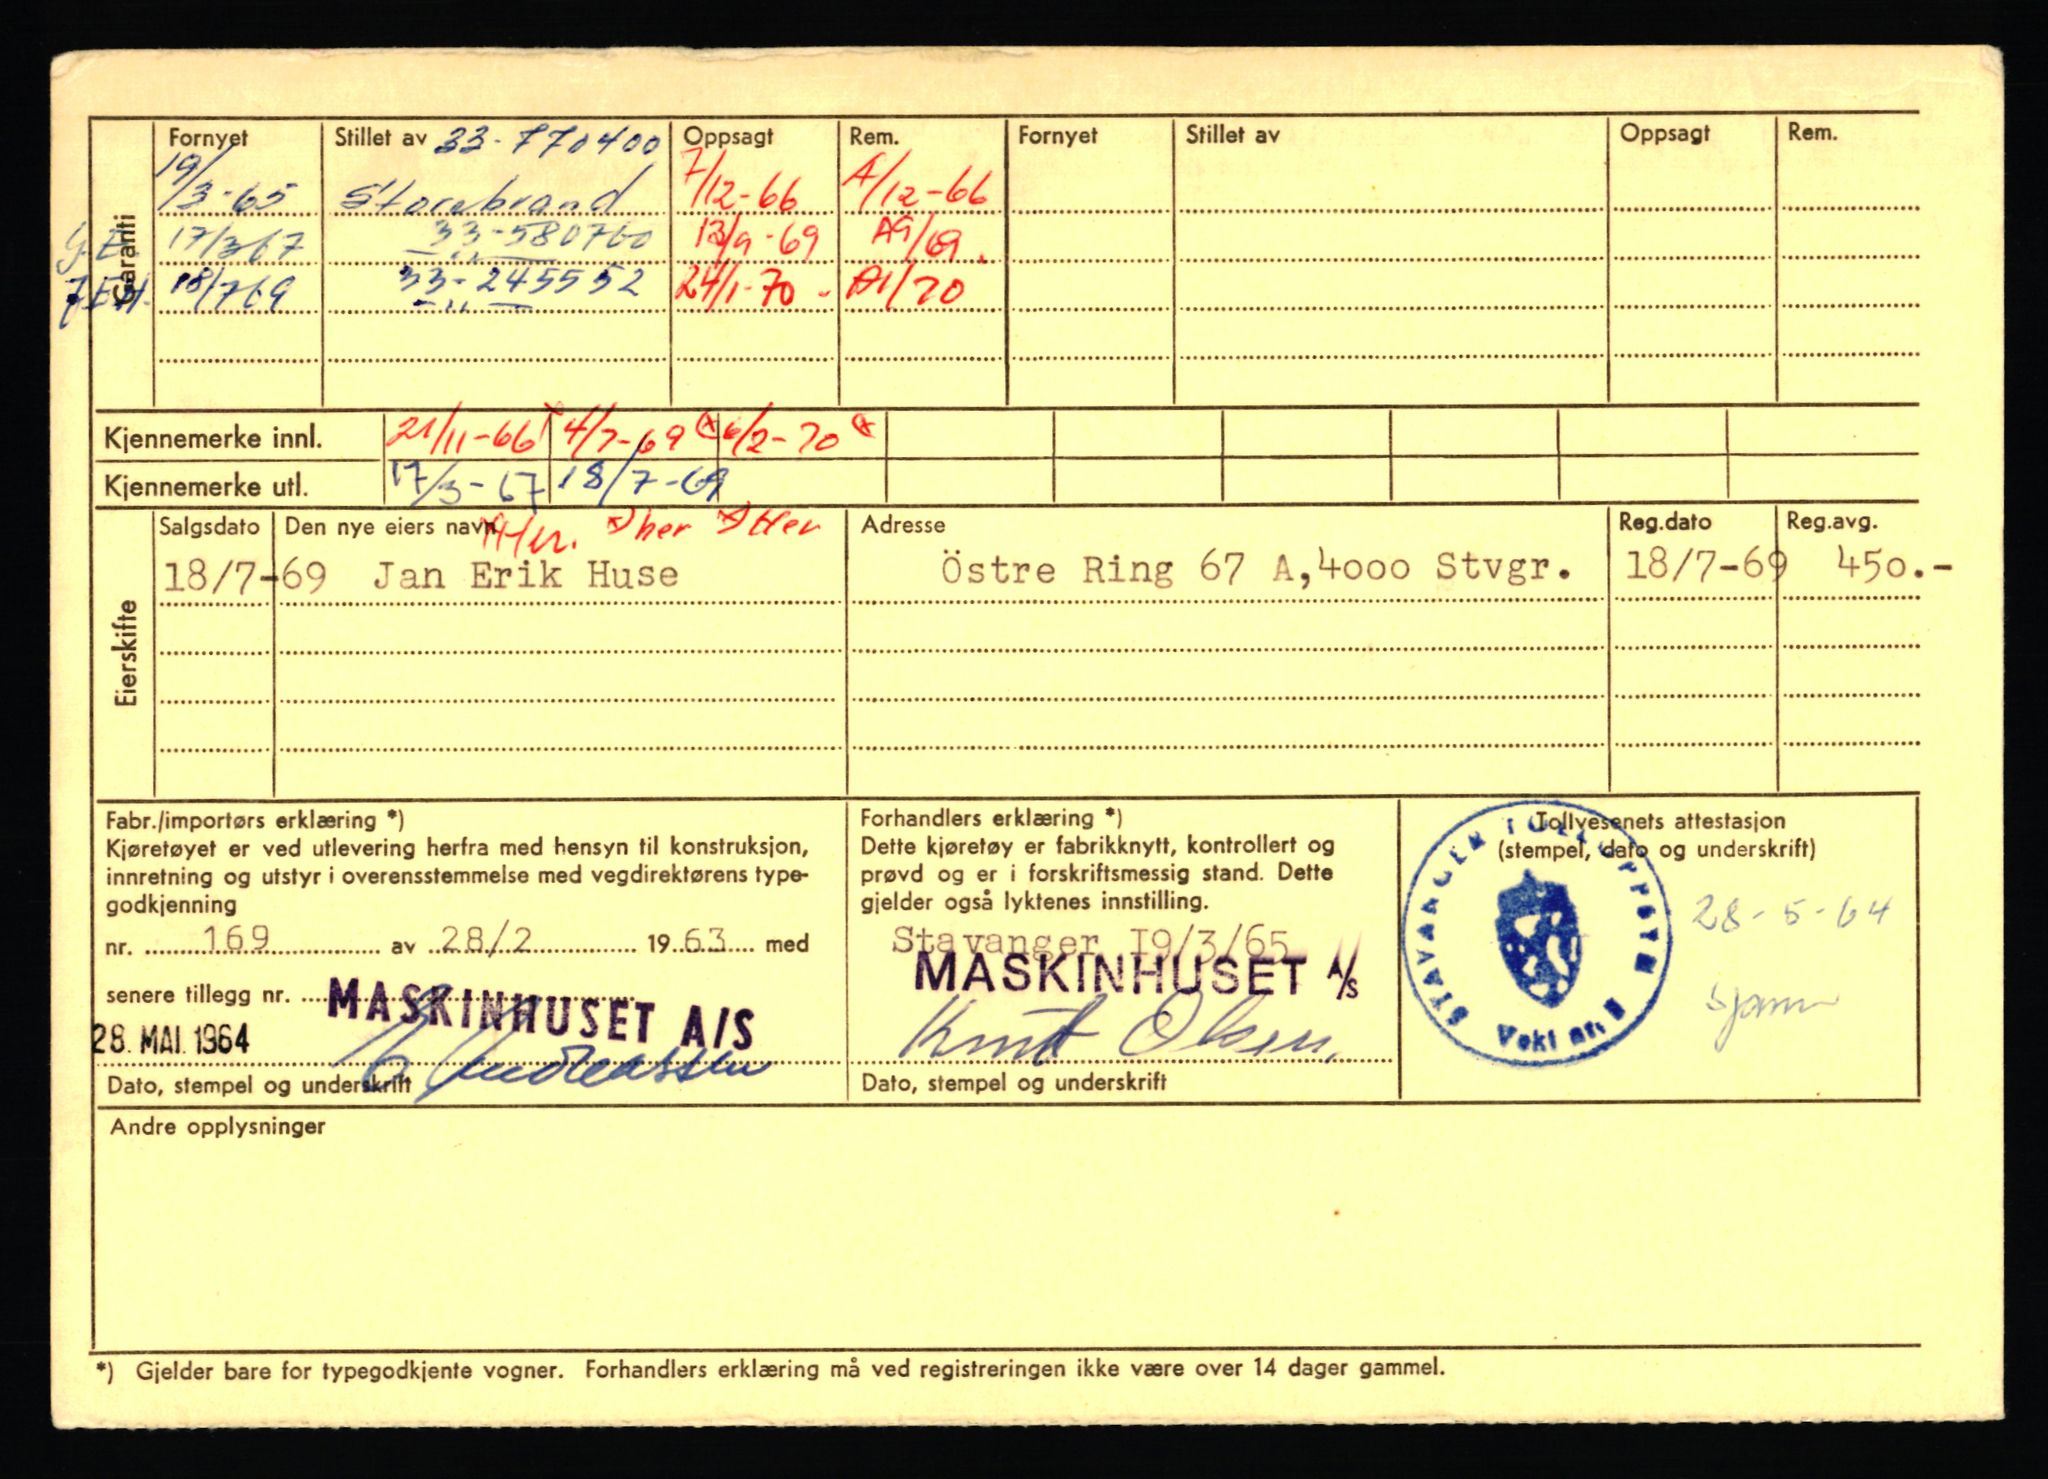 Fornyet Stillet av 33-770400 Oppsagt Rem. Fornyet Stillet av Oppsagt Rem.
Garanti
19/3-65 Storebrand 7/12-66 A/12-66
17/367 33-580760 13/9-69 A9/69.
J.E.H. 18/769 33-2455552 24/1-70 - A1/70
Kjennemerke innl. 21/11-66 4/7-69 6/2-70
Kjennemerke utl. 17/3-67 18/7-69
Eierskifte
Salgsdato Den nye eiers navn Adresse Reg.dato Reg.avg.
18/7-69 Jan Erik Huse Östre Ring 67 A,4000 Stvgr. 18/7-69 450.-
Fabr./importørs erklæring *)
Kjøretøyet er ved utlevering herfra med hensyn til konstruksjon,
innretning og utstyr i overensstemmelse med vegdirektørens type-
godkjenning
nr. 169 av 28/2 19 63 med
senere tillegg nr.
MASKINHUSET A/S
28. MAI 1964
Dato, stempel og underskrift
Forhandlers erklæring *)
Dette kjøretøy er fabrikknytt, kontrollert og
prøvd og er i forskriftsmessig stand. Dette
gjelder også lyktenes innstilling.
Stavanger I9/3/65
MASKINHUSET A/S
Knut Olsen
Dato, stempel og underskrift
Tollvesenets attestasjon
(stempel, dato og underskrift)
28-5-64
Andre opplysninger
*) Gjelder bare for typegodkjente vogner. Forhandlers erklæring må ved registreringen ikke være over 14 dager gammel.